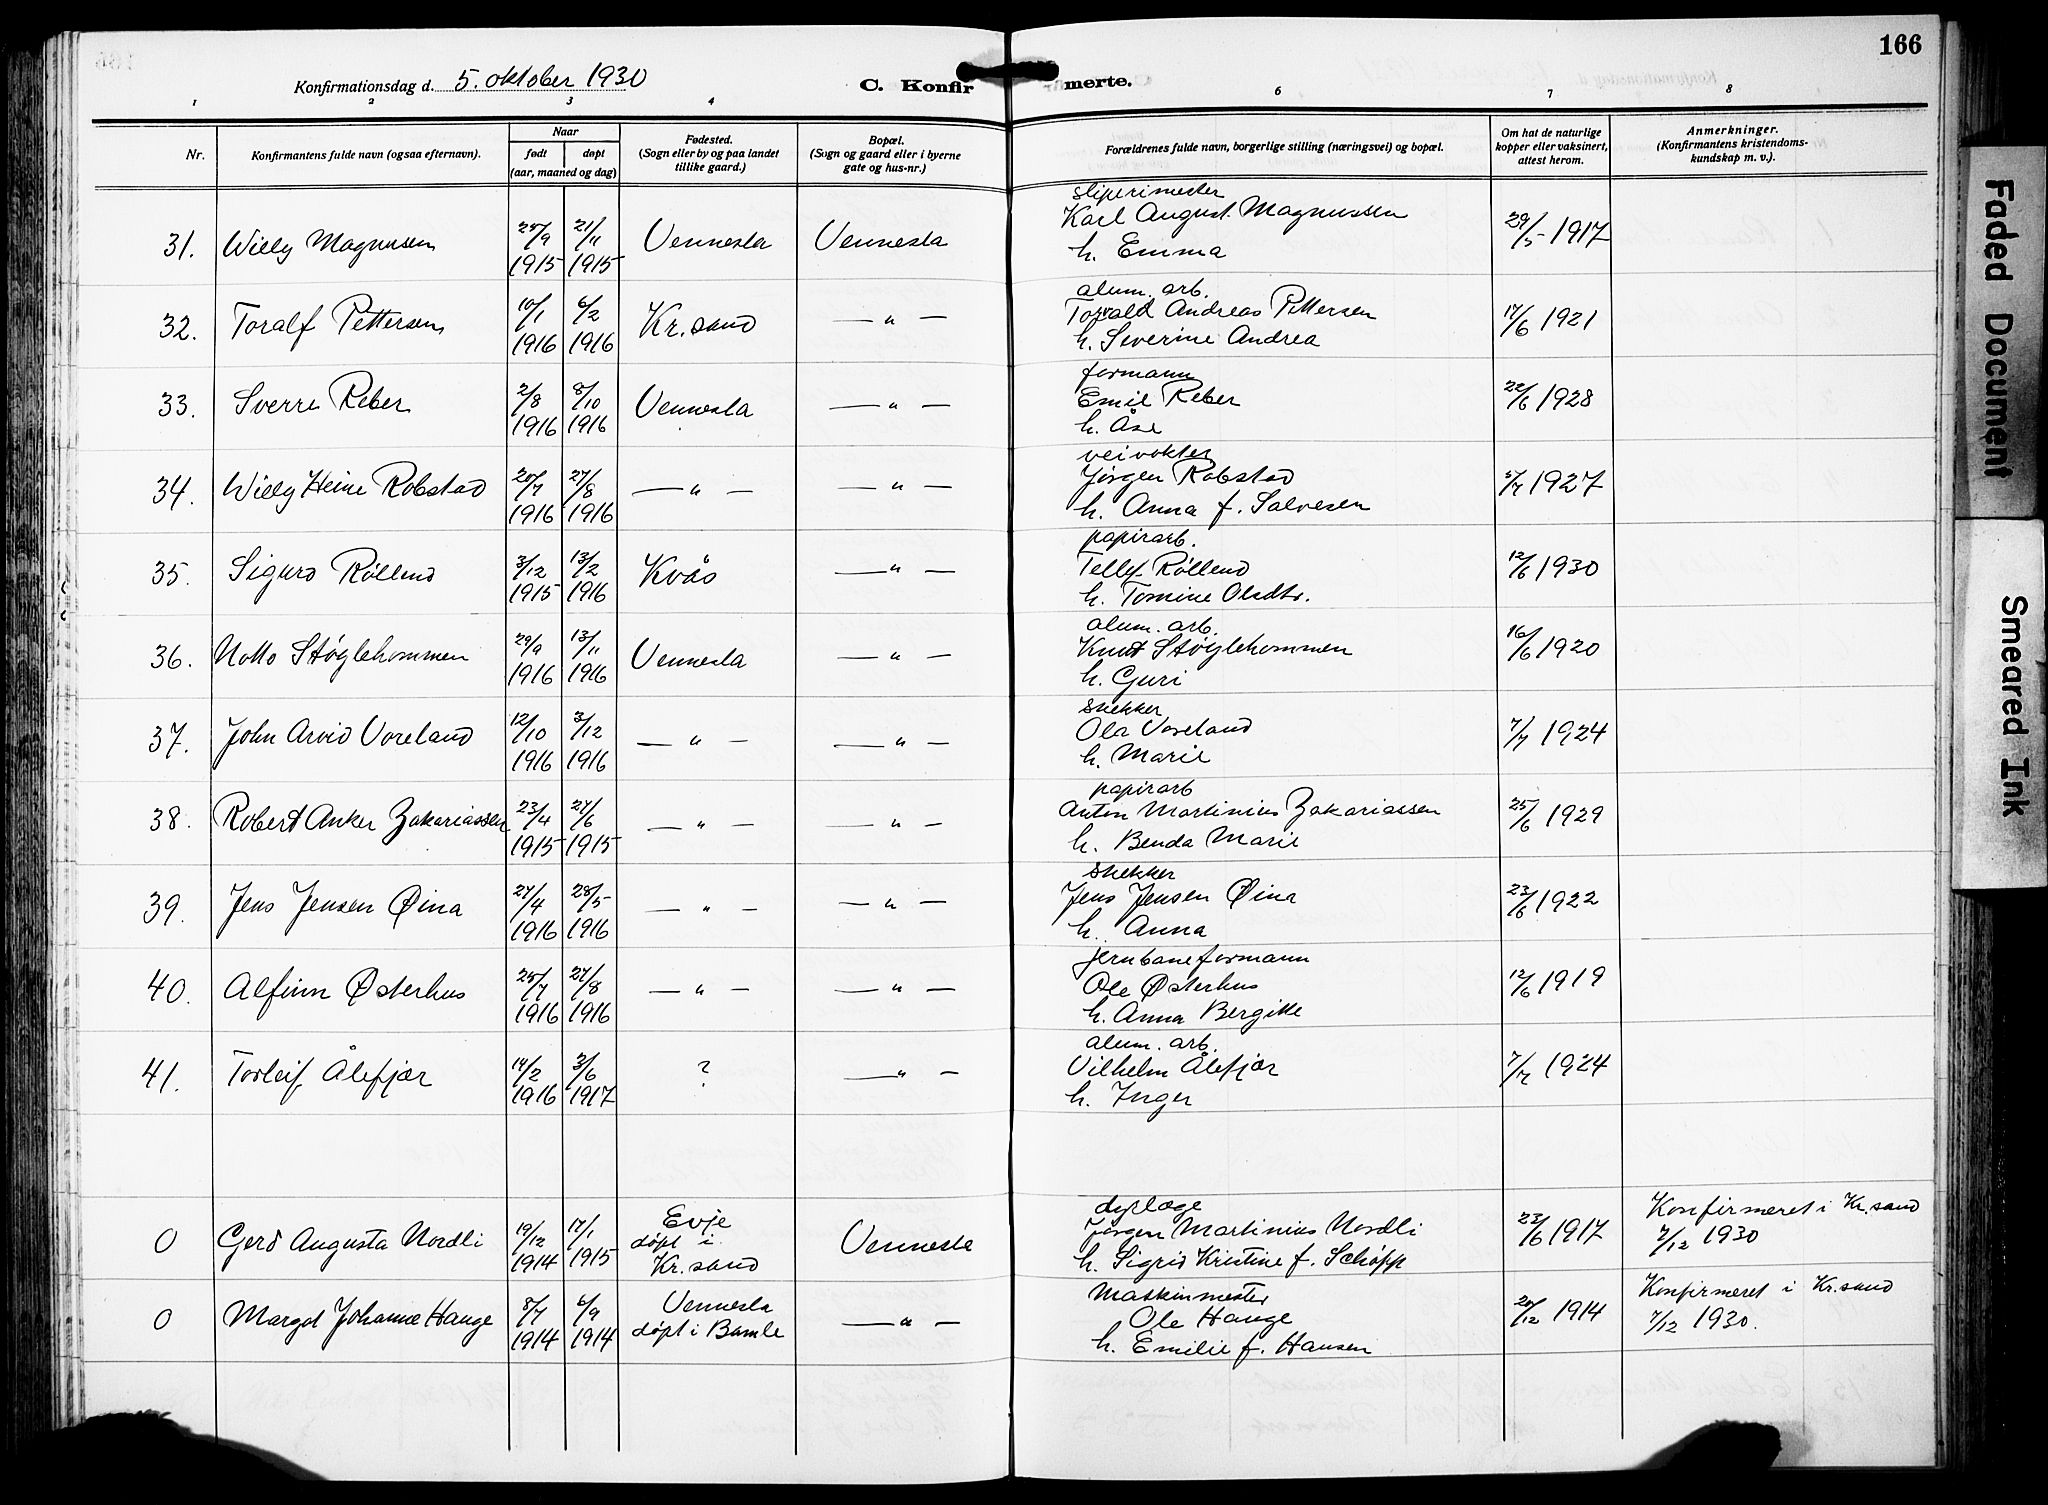 166
Konfirmationsdag d. 5. oktober 1930 C. Konfirmerte.
1 2 3 4 6 7 8
Nr.
Konfirmantens fulde navn (ogsaa efternavn).
Naar
født døpt
(aar, maaned og dag)
Fødested.
(Sogn eller by og paa landet
tillike gaard.)
Bopæl.
(Sogn og gaard eller i byerne
gate og hus-nr.)
Forældrenes fulde navn, borgerlige stilling (næringsvei) og bopæl.
Om hat de naturlige
kopper eller vaksinert,
attest herom.
Anmerkninger.
(Konfirmantens kristendoms-
kundskap m. v.).
sliperimester
31. Willy Magnusen 25/9 21/11 Vennesla Vennesla Karl August Magnussen 29/5 1917
1915 1915 h. Emma
alum. arb.
32. Toralf Pettersen 10/1 6/2 Kr.sand — " — Torvald Andreas Pettersen 17/6 1921
1916 1916 h. Severine Andrea
formann
33. Sverre Reber 2/8 8/10 Vennesla — " — Emil Reber 22/6 1928
1916 1916 h. Åse
veivokter
34. Willy Heine Robstad 20/7 27/8 — " — — " — Jørgen Robstad 5/7 1927
1916 1916 h. Anna f. Salvesen
papirarb.
35. Sigurd Røllend 3/12 13/2 Kvås — " — Tellef Røllend 12/6 1930
1915 1916 h. Tomine Olsdtr.
alum. arb.
36. Notto Støylehommen 29/9 13/11 Vennesla — " — Knut Støylehommen 16/6 1920
1916 1916 h. Guri
snekker
37. John Arvid Voreland 12/10 3/12 — " — — " — Ola Voreland 7/7 1924
1916 1916 h. Marie
papirarb
38. Robert Anker Zakariassen 23/4 27/6 — " — — " — Anton Martinius Zakariassen 25/6 1929
1915 1915 h. Benda Marie
snekker
39. Jens Jensen Øina 27/4 28/5 — " — — " — Jens Jensen Øina 23/6 1922
1916 1916 h. Anna
jernbaneformann
40. Alfinn Østerhus 25/7 27/8 — " — — " — Ole Østerhus 12/6 1919
1916 1916 h. Anna Bergitte
alum. arb.
41. Torleif Ålefjær 14/2 3/6 ? — " — Vilhelm Ålefjær 7/7 1924
1916 1917 h. Inger
Evje dyrlæge Konfirmeret i Kr.sand
0 Gerd Augusta Nordli 19/12 17/1 døpt i Vennesla Jørgen Martinius Nordli 23/6 1917 7/12 1930
1914 1915 Kr.sand h. Sigrid Kristine f. Schøpp
Vennesla Maskinmester Konfirmeret i Kr.sand
0 Margot Johanne Hauge 8/7 6/9 døpt i Bamle — " — Ole Hauge 20/12 1914 7/12 1930.
1914 1914 h. Emilie f. Hansen
Faded Document
Smeared Ink